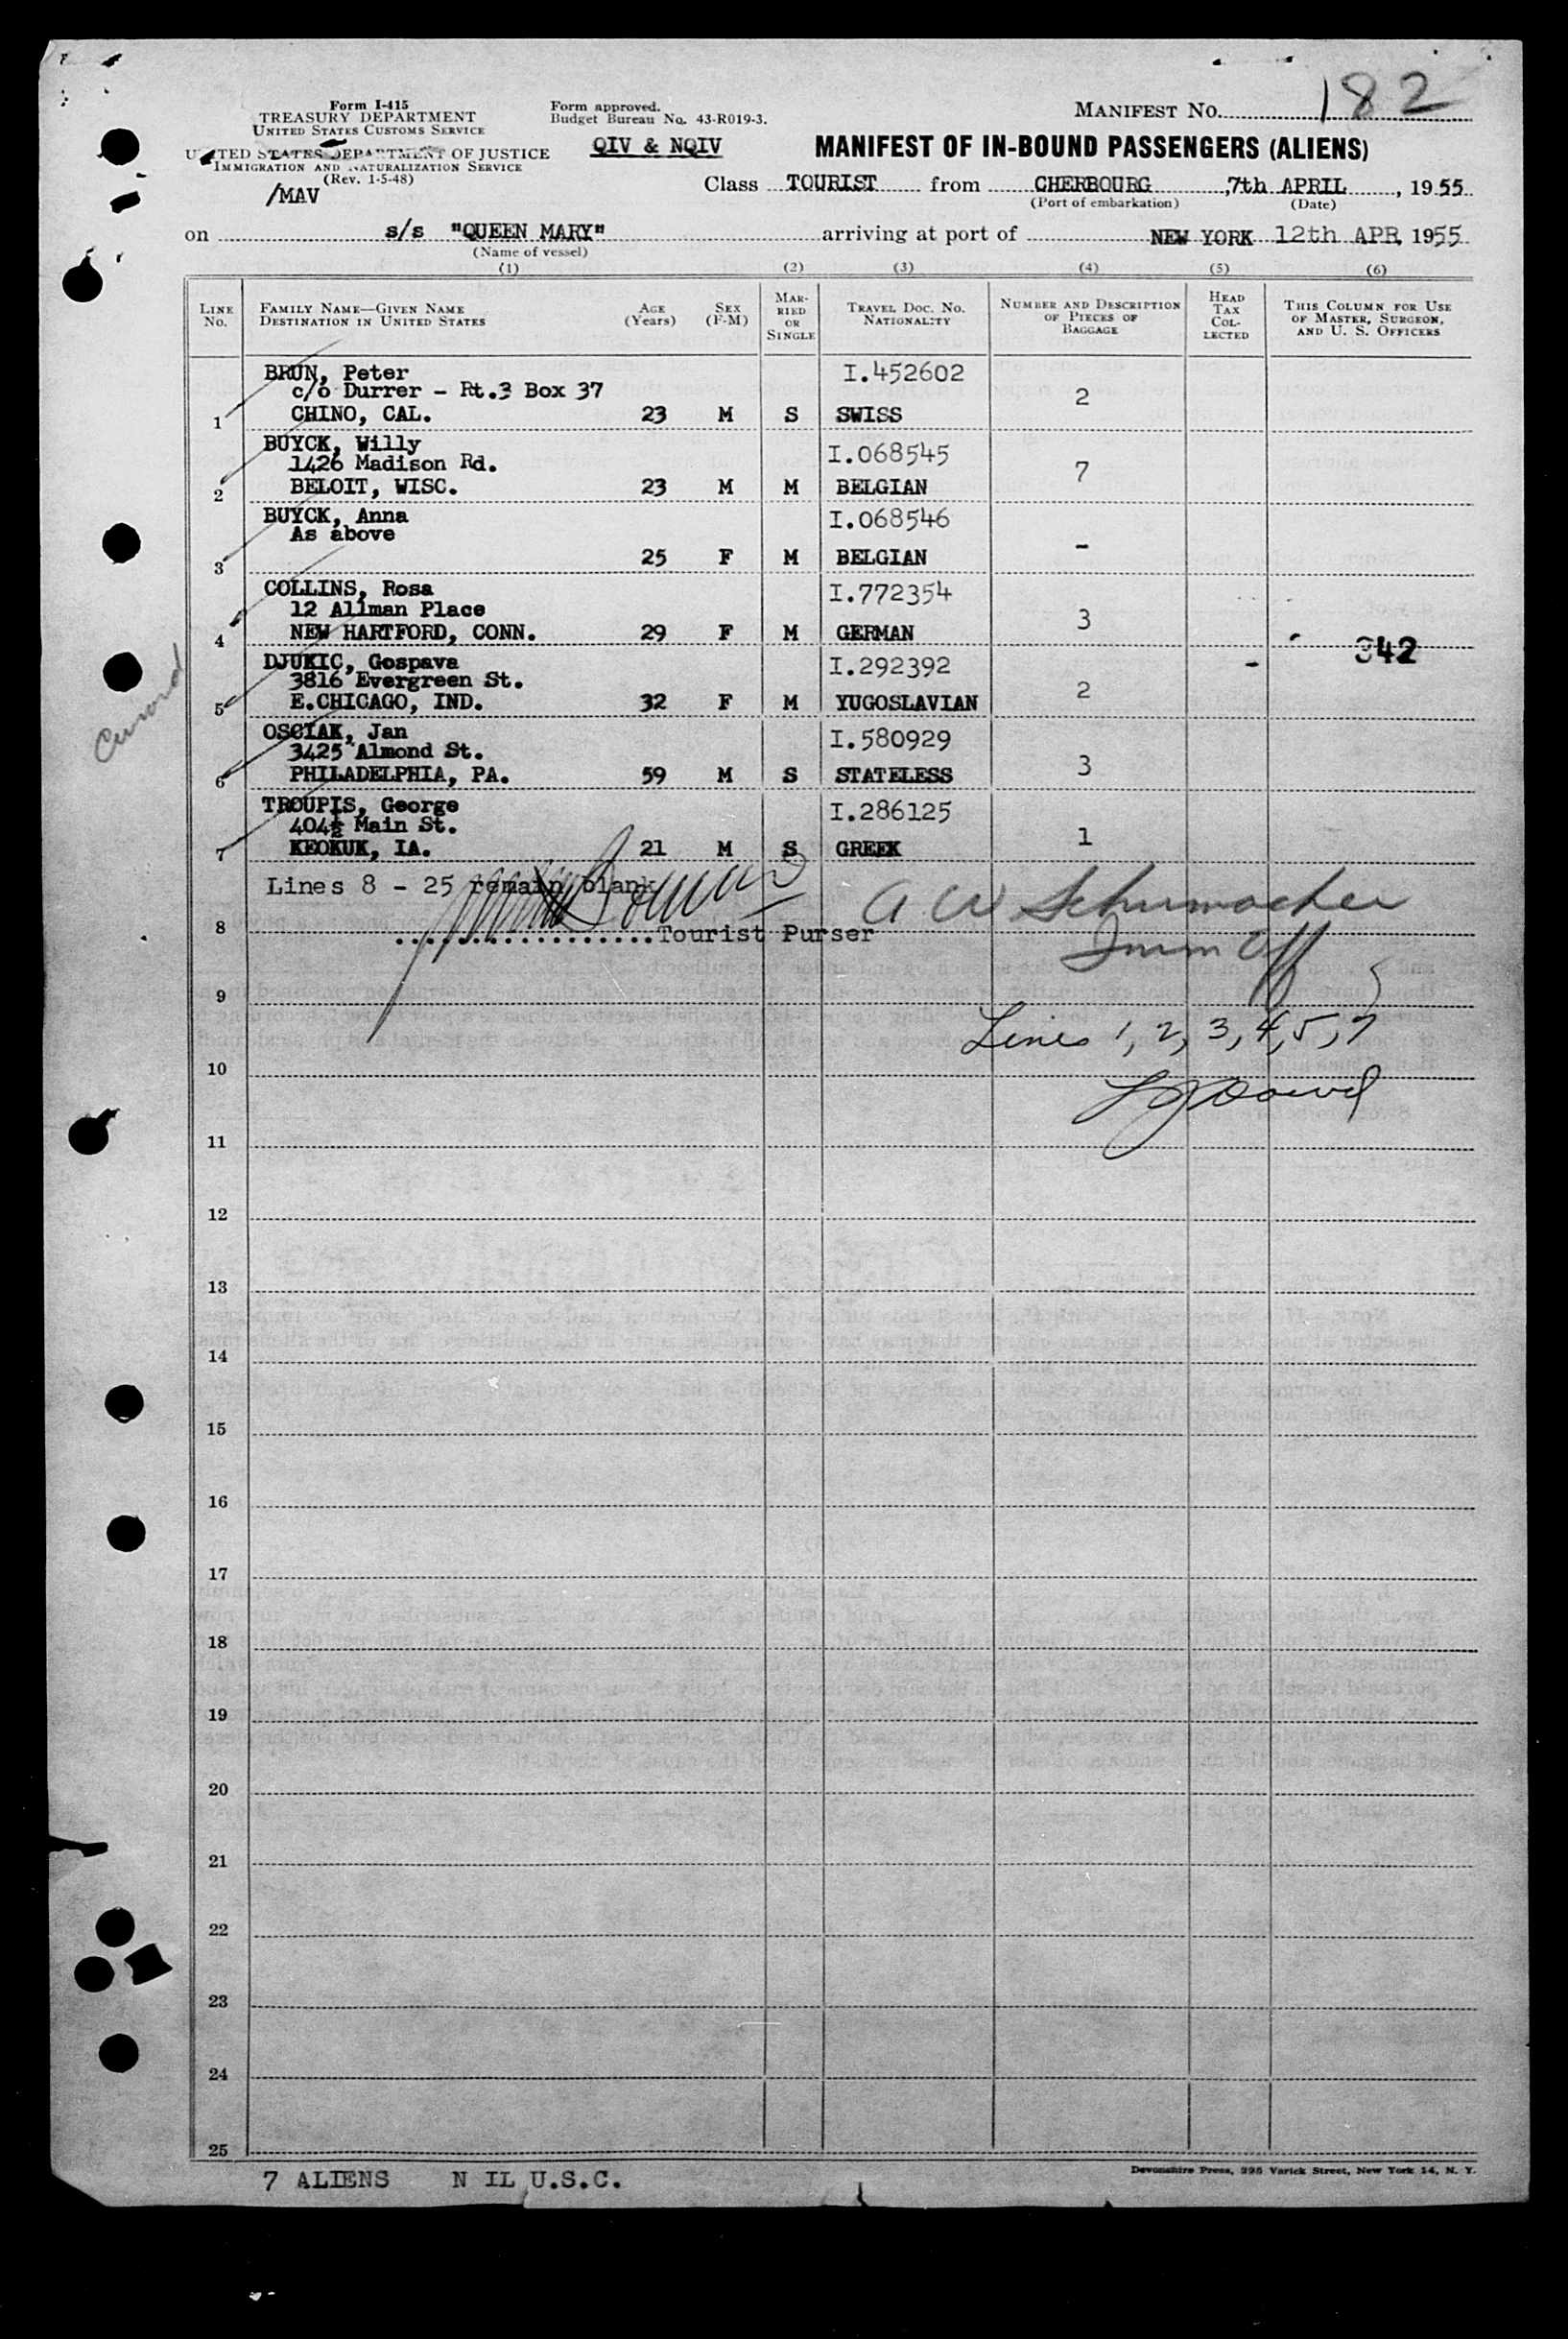 Form I-415
TREASURY DEPARTMENT
UNITED STATES CUSTOMS SERVICE
UNITED STATES DEPARTMENT OF JUSTICE
IMMIGRATION AND NATURALIZATION SERVICE
(Rev. 1-5-48)
/MAV
Form approved.
Budget Bureau No. 43-R019-3.
QIV & NQIV
MANIFEST NO. 182
MANIFEST OF IN-BOUND PASSENGERS (ALIENS)
Class TOURIST from CHERBOURG, 7th APRIL, 1955
(Port of embarkation) (Date)
on s/s "QUEEN MARY" arriving at port of NEW YORK 12th APR, 1955
(Name of vessel)
(1) (2) (3) (4) (5) (6)
LINE No. FAMILY NAME—GIVEN NAME DESTINATION IN UNITED STATES AGE (Years) SEX (F-M) MARRIED OR SINGLE TRAVEL DOC. NO. NATIONALITY NUMBER AND DESCRIPTION OF PIECES OF BAGGAGE HEAD TAX COLLECTED THIS COLUMN FOR USE OF MASTER, SURGEON, AND U. S. OFFICERS
BRUN, Peter I.452602
c/o Durrer - Rt.3 Box 37 2
1 CHINO, CAL. 23 M S SWISS
BUYCK, Willy I.068545
1426 Madison Rd. 7
2 BELOIT, WISC. 23 M M BELGIAN
BUYCK, Anna I.068546
As above
3 25 F M BELGIAN -
COLLINS, Rosa I.772354
12 Allman Place 3
4 NEW HARTFORD, CONN. 29 F M GERMAN
342
DJUKIC, Gospava I.292392
3816 Evergreen St. 2
5 E.CHICAGO, IND. 32 F M YUGOSLAVIAN
OSCIAK, Jan I.580929
3425 Almond St. 3
6 PHILADELPHIA, PA. 59 M S STATELESS
TROUPIS, George I.286125
404½ Main St. 1
7 KEOKUK, IA. 21 M S GREEK
Cunard
Lines 8 - 25 remain blank
A W Schumacher
8
..................Tourist Purser
Imm Off
9
Lines 1, 2, 3, 4, 5, 7
10
11
12
13
14
15
16
17
18
19
20
21
22
23
24
25
Devonshire Press, 395 Varick Street, New York 14, N. Y.
7 ALIENS N IL U.S.C.